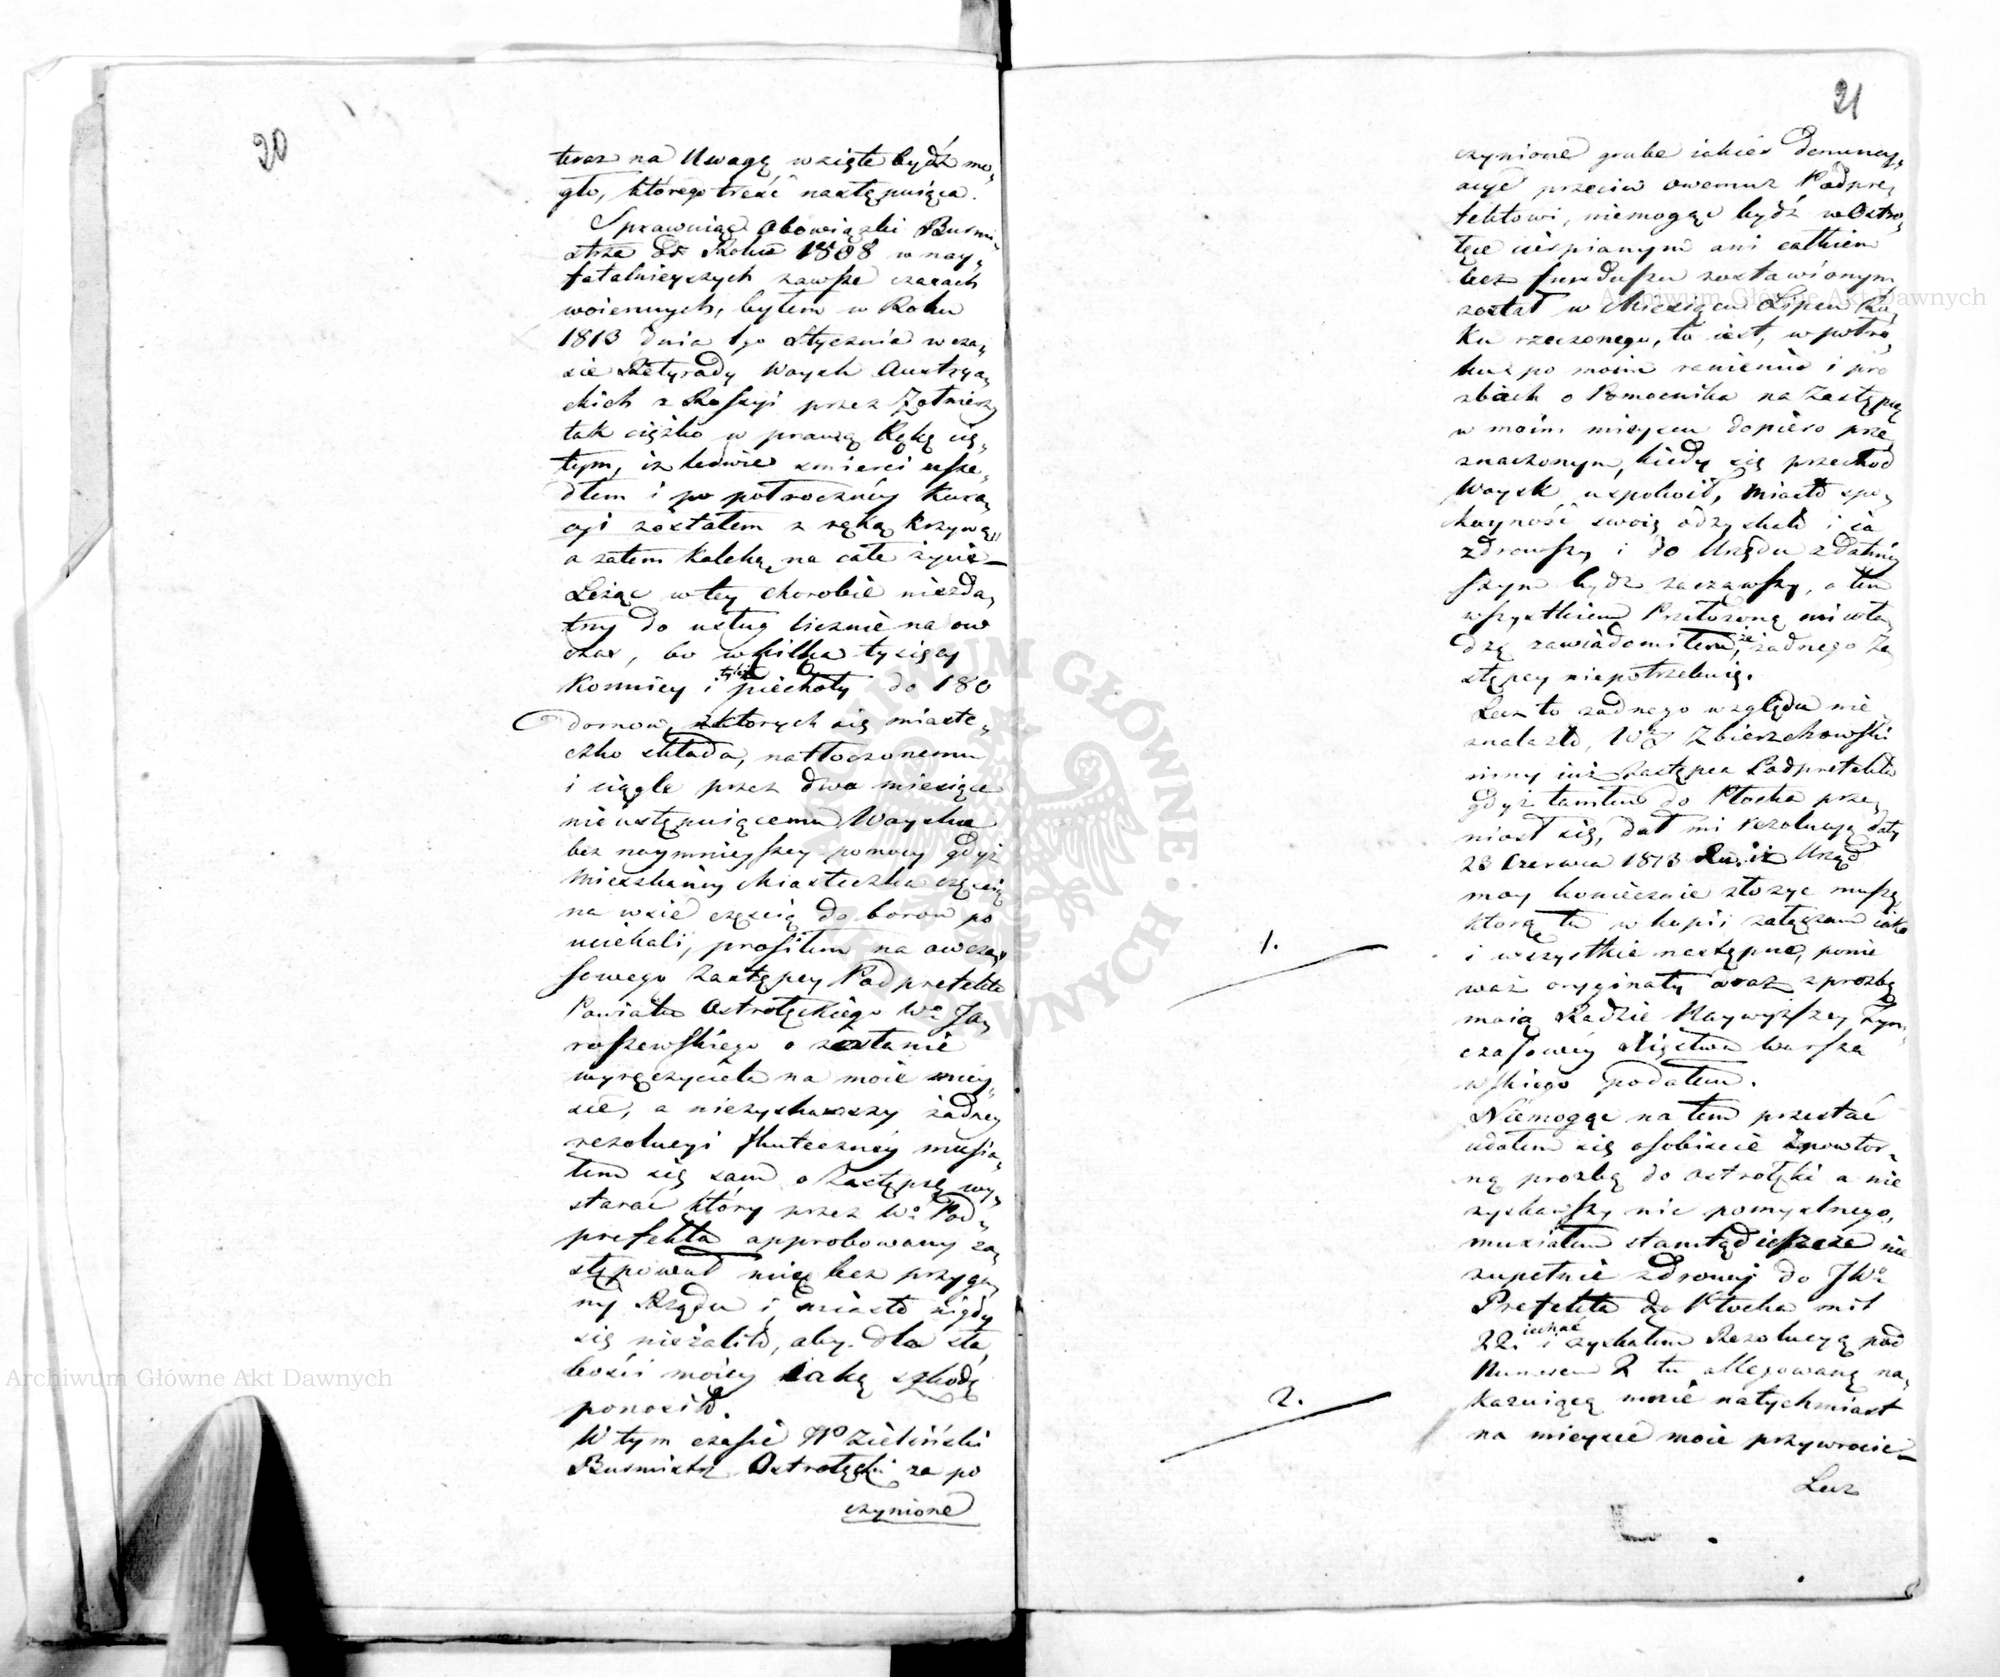 20
teraz na Uwagę wzięte bydź mo„
gło, którego treść następuiąca.
Sprawuiąc Obowiązki Burmi„
strza Od Roku 1808 w nay„
fatalnieyszych zawsze czasach
woiennych, byłem w Roku
1813 dnia 1go Stycznia w cza„
sie Retyrady Woysk Austrya„
ckich z Rossyi przez Żołnierzy
tak ciężko w prawą Rękę cię„
tym, iż ledwie śmierci usze„
dłem i po półroczney Kura„
cyi zostałem z ręką krzywą,
a zatem kaleką na całe życie —
Leżąc w tey chorobie niezda„
tny do usług licznie na ow
czas, bo w kilka tysięcy
Konnicy i tyleż piechoty do 180
domow, z ktorych się miaste„
czko składa, natłoczonemu
i ciągle przez dwa miesiące
nieustępuiącemu Woysku
bez naymnieyszey pomocy gdyż
Mieszkańcy Miasteczka częścią
na wsie częścią do borow po
uciekali, prosiłem na owcza„
sowego Zastępcy Podprefekta
Powiatu Ostrołęckiego Wo Ja„
roszewskiego o zesłanie
wyręczyciela na moie miey„
sce, a niezyskawszy żadney
rezolucyi skuteczney musia„
łem się sam o Zastępcę wy„
starać który przez Wo Pod„
prefekta approbowany za„
stępował mię bez przyga„
ny Rządu i miasto nigdy
się nieżaliło, aby dla sła
bości moiey iaką szkodę
ponosiło.
W tym czasie Wo Zieliński
Burmistrz Ostrołęcki za po
czynione
21
czynione grube iakieś denuncy„
acye przeciw owemuż Podpre„
fektowi, niemogąc bydź w Ostro„
łęce cierpianym ani całkiem
bez funduszu zostawionym
został w Miesiącu Lipcu Ro„
ku rzeczonego, to iest, w połro„
ku po moim ranieniu i pro
zbach o Pomocnika na Zastępcę
w moim mieyscu dopiero prze„
znaczonym, kiedy się przechod
Woysk uspokoił, Miasto spo„
koyność swoią odzyskało i ia
zdrowszy i do Urzędu zdatniey
szym bydź zacząwszy, o tem
wszystkiem Przełożoną mi wła„
dzę zawiadomiłem, że żadnego Za
stępcy niepotrzebuię.
Lecz to żadnego względu nie„
znalazło, Wny Zbierzchowski
inny iuż Zastępca Podprefekta
gdyż tamten do Płocka prze„
niosł się, dał mi rezolucyą daty
23 Czerwca 1813 Ru. iż Urząd
moy koniecznie złożyć muszę
ktorą tu w kopii załączam iako
i wszystkie następne, ponie
waż oryginały wraz z prozbą
moią Radzie Naywyższey Tym„
czasowey Xięstwa Warsza
wskiego podałem.
1.
Niemogąc na tem przestać
udałem się osobiście z powtor„
ną prozbą do Ostrołęki a nie
zyskawszy nic pomyslnego,
musiałem stamtąd ieszcze nie
zupełnie zdrowy do JWo
Prefekta do Płocka mil
22. iechać i zyskałem Rezolucyą pod
Numerem 2 tu allegowaną na„
kazuiącą mnie natychmiast
na mieysce moie przywrocić —
2.
Lecz
Archiwum Główne Akt Dawnych
Archiwum Główne Akt Dawnych